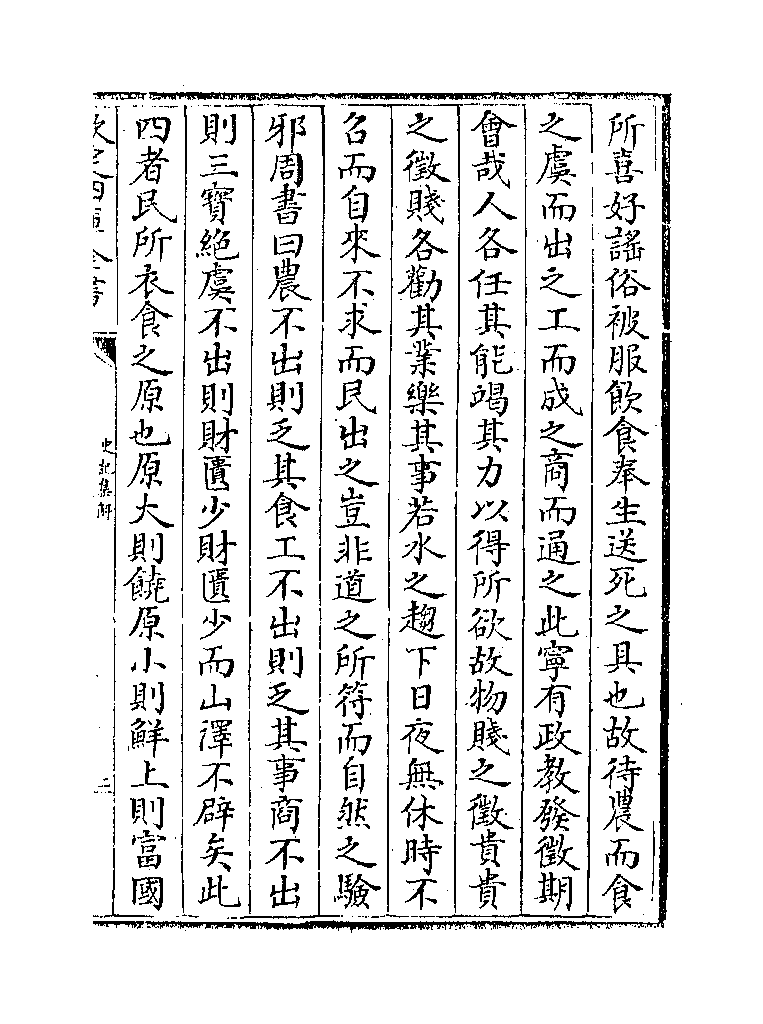 所喜好謠俗被服飲食奉生送死之具也故待農而食
之虞而出之工而成之商而通之此寧有政教發徵期
會哉人各任其能竭其力以得所欲故物賤之徵貴貴
之徵賤各勸其業樂其事若水之趨下日夜無休時不
召而自來不求而民出之豈非道之所符而自然之驗
邪周書曰農不出則乏其食工不出則乏其事商不出
則三寶絶虞不出則財匱少財匱少而山澤不辟矣此
四者民所衣食之原也原大則饒原小則鮮上則富國
欽定四庫全書
史記集解
三